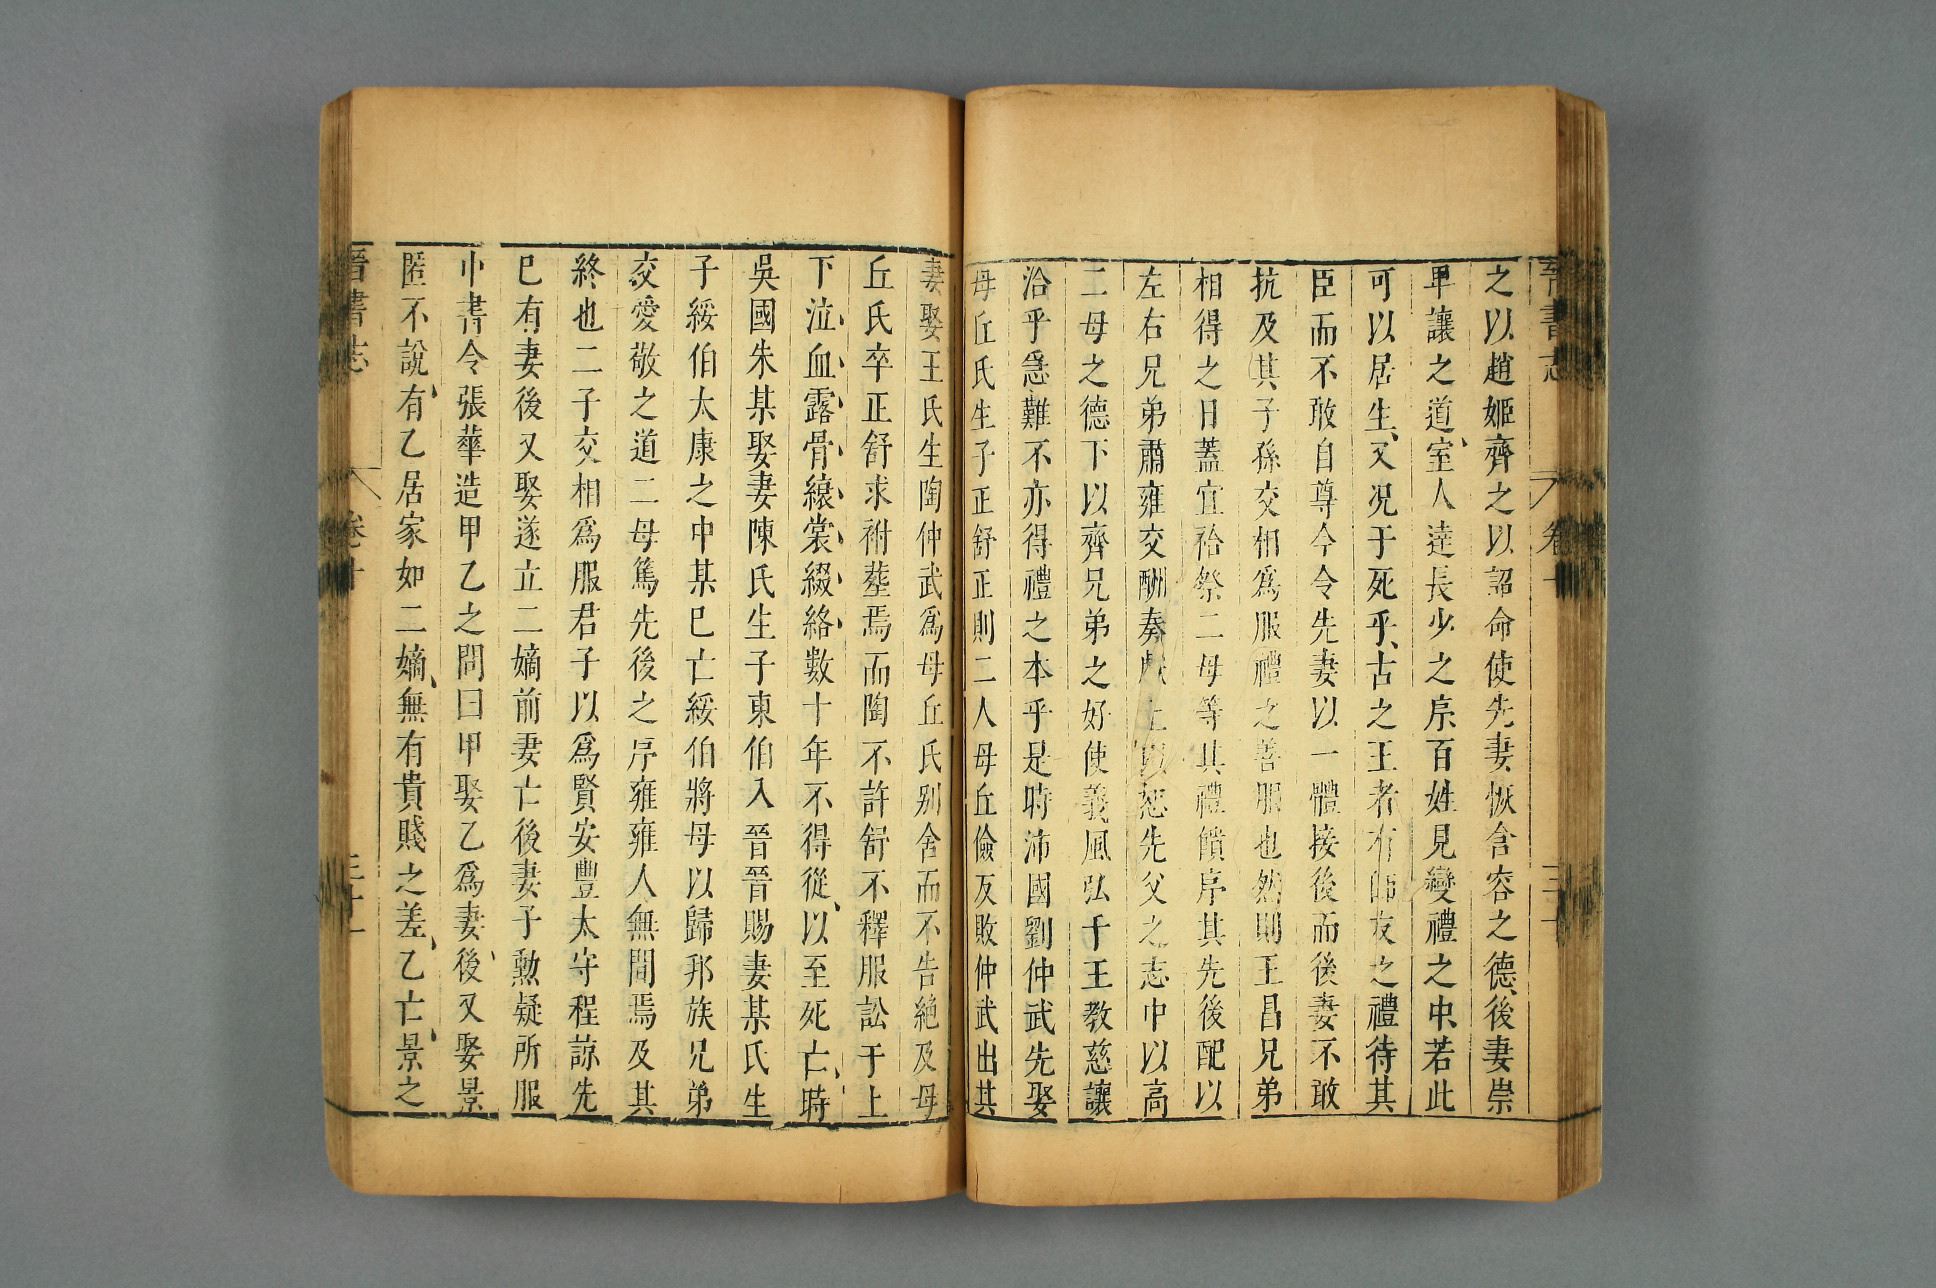 晉書志 卷十 三十
之以趙姬齊之以詔命使先妻恢含容之德後妻崇
卑讓之道室人達長少之序百姓見變禮之中若此
可以居生又況于死乎古之王者有師友之禮待其
臣而不敢自尊今令先妻以一體接後而後妻不敢
抗及其子孫交相爲服禮之善服也然則王昌兄弟
相得之日蓋宜祫祭二母等其禮饋序其先後配以
左右兄弟肅雍交酬奏獻上以恕先父之志中以高
二母之德下以齊兄弟之好使義風弘于王教慈讓
洽乎急難不亦得禮之本乎是時沛國劉仲武先娶
毋丘氏生子正舒正則二人毋丘儉反敗仲武出其
妻娶王氏生陶仲武爲毋丘氏别舍而不告絶及毋
丘氏卒正舒求祔塟焉而陶不許舒不釋服訟于上
下泣血露骨縗裳綴絡數十年不得從以至死亡時
吳國朱某娶妻陳氏生子東伯入晉晉賜妻某氏生
子綏伯太康之中某巳亡綏伯將母以歸邦族兄弟
交愛敬之道二母篤先後之序雍雍人無間焉及其
終也二子交相爲服君子以爲賢安豐太守程諒先
巳有妻後又娶遂立二嫡前妻亡後妻子勲疑所服
中書令張華造甲乙之問曰甲娶乙爲妻後又娶景
匿不說有乙居家如二嫡無有貴賤之差乙亡景之
晉書志 卷十 三十一